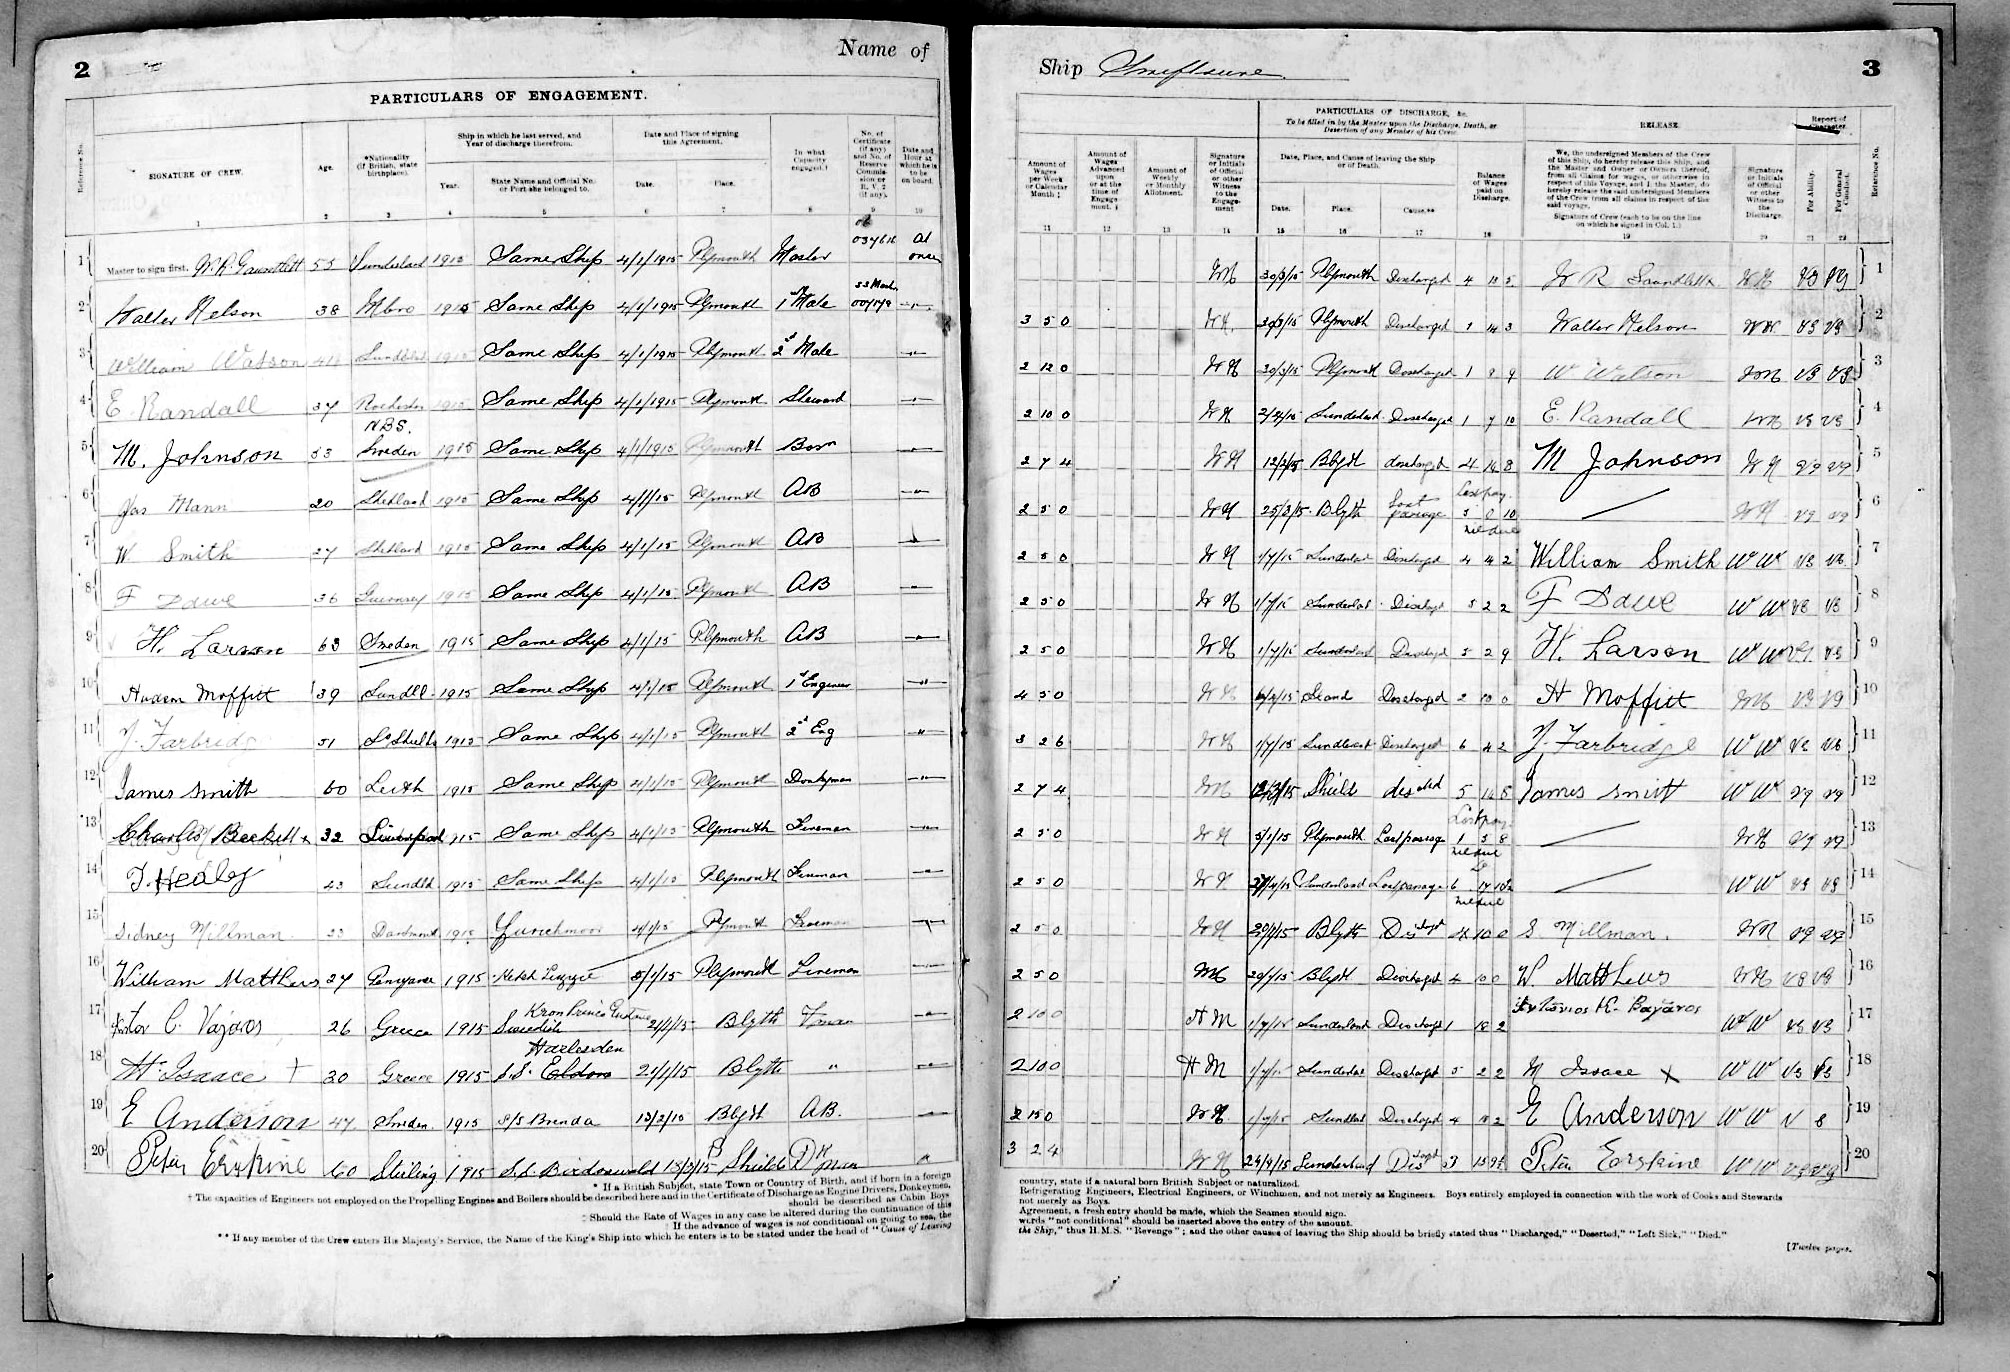 2
Name of
PARTICULARS OF ENGAGEMENT.
Reference No.
SIGNATURE OF CREW.
Age.
*Nationality (If British, state birthplace).
Ship in which he last served, and Year of discharge therefrom.
Year.
State Name and Official No. or Port she belonged to.
Date and Place of signing this Agreement.
Date.
Place.
In what Capacity engaged.†
No. of Certificate (if any) and No. of Reserve Commission or R.V.2 (if any).
Date and Hour at which he is to be on board.
1 2 3 4 5 6 7 8 9 10
1 Master to sign first. W. R. Gauntlett 55 Sunderland 1915 Same Ship 4/1/1915 Plymouth Master 037616 At once
2 Walter Nelson 38 Mbro 1915 Same Ship 4/1/1915 Plymouth 1st Mate -"-
3 William Watson Sundld 1915 Same Ship 4/1/1915 Plymouth 2d Mate -"-
4 E. Randall 37 Rochester 1915 Same Ship 4/1/1915 Plymouth Steward -"-
NBS.
5 M. Johnson 53 Sweden 1915 Same Ship 4/1/1915 Plymouth Bosn -"-
6 Jas Mann 20 Shetland 1915 Same Ship 4/1/15 Plymouth AB -"-
7 W. Smith 27 Shetland 1915 Same Ship 4/1/15 Plymouth AB -"-
8 F Dawe 36 Guernsey 1915 Same Ship 4/1/15 Plymouth AB -"-
9 H. Larson 63 Sweden 1915 Same Ship 4/1/15 Plymouth AB -"-
10 Hudson Moffitt 39 Sundld 1915 Same Ship 4/1/15 Plymouth 1st Engineer -"-
11 J. Farbridge 51 So Shields 1915 Same Ship 4/1/15 Plymouth 2d Eng "
12 James Smith 60 Leith 1915 Same Ship 4/1/15 Plymouth Donkyman -"-
13 Charles Beckett x 32 Liverpool 1915 Same Ship 4/1/15 Plymouth Fireman -"-
14 T. Healey 43 Sundld 1915 Same Ship 4/1/15 Plymouth Fireman -"-
15 Sidney Millman 23 Dartmouth 1915 4/1/15 Plymouth Fireman -"-
16 William Matthews 27 Penzance 1915 Ketch Lizzie 5/1/15 Plymouth Fireman -"-
17 C. Vajaros 26 Greece 1915 Swedish 21/1/15 Blyth Fman -"-
Harlesden
18 M Isaace + 30 Greece 1915 S.S. Eldon 21/1/15 Blyth " -"-
19 E Anderson 47 Sweden 1915 S/S Brenda 13/2/15 Blyth A.B. -"-
20 Peter Erskine 60 Stirling 1915 S.S. Birdoswald 13/3/15 Shields Dkman "
* If a British Subject, state Town or Country of Birth, and if born in a foreign
† The capacities of Engineers not employed on the Propelling Engines and Boilers should be described here and in the Certificate of Discharge as Engine Drivers, Donkeymen,
should be described as Cabin Boys
‡ Should the Rate of Wages in any case be altered during the continuance of this
If the advance of wages is not conditional on going to sea, the
** If any member of the Crew enters His Majesty's Service, the Name of the King's Ship into which he enters is to be stated under the head of "Cause of Leaving
Ship Swiftsure
3
Amount of Wages per Week or Calendar Month ‡
Amount of Wages Advanced upon or at the time of Engagement. ‡
Amount of Weekly or Monthly Allotment.
Signature or Initials of Official or other Witness to the Engagement
PARTICULARS OF DISCHARGE, &c.
To be filled in by the Master upon the Discharge, Death, or Desertion of any Member of his Crew.
Date, Place, and Cause of leaving the Ship or of Death.
Date. Place. Cause.**
Balance of Wages paid on Discharge.
RELEASE.
We, the undersigned Members of the Crew of this Ship, do hereby release this Ship, and the Master and Owner or Owners thereof, from all Claims for wages, or otherwise in respect of this Voyage, and I, the Master, do hereby release the said undersigned Members of the Crew from all claims in respect of the said voyage.
Signature of Crew (each to be on the line on which he signed in Col. 1.)
Signature or Initials of Official or other Witness to the Discharge.
Report of Character.
For Ability.
For General Conduct.
Reference No.
11 12 13 14 15 16 17 18 19 20 21 22
30/3/15 Plymouth Discharged W R Gauntlett VG VG 1
3 5 0 30/3/15 Plymouth Discharged 1 14 3 Walter Nelson VG VG 2
2 12 0 WN 30/3/15 Plymouth Discharged 1 9 9 W Watson VG VG 3
2 10 0 WN Sunderland Discharged 1 7 10 E. Randall VG VG 4
2 7 4 WN 12/2/15 Blyth discharged 4 14 8 M Johnson WN VG VG 5
Lost pay.
2 5 0 WN 25/3/15 Blyth Lost passage 5 0 10 WN VG VG 6
nil due
2 5 0 WN 1/7/15 Sunderland Discharged 4 4 2 William Smith WW VG VG 7
2 5 0 WN 1/7/15 Sunderland Discharged 5 2 2 F Dawe WW VG VG 8
2 5 0 WN 1/7/15 Sunderland Discharged 5 2 9 H. Larson WW VG VG 9
4 5 0 WN Sland Discharged 2 10 0 H Moffitt VG VG 10
3 2 6 WN 1/7/15 Sunderland Discharged 6 4 2 J. Farbridge WW VG VG 11
2 7 4 Shields 5 James Smith WW VG VG 12
Lost pay.
2 5 0 WN 5/1/15 Plymouth Lost passage 1 5 8 WN VG VG 13
nil due
2 5 0 WN Sunderland Lost passage 6 WW VG VG 14
nil due
2 5 0 WN Blyth Disched 4 10 0 S. Millman. WN VG VG 15
2 5 0 20/1/15 Blyth Discharged 4 10 0 W. Matthews WN VG VG 16
2 10 0 HM 1/7/15 Sunderland Discharged 1 18 2 WW VG VG 17
2 10 0 HM 1/7/15 Sunderland Discharged 5 2 2 M Isaace x WW VG VG 18
2 15 0 WN Sundld Discharged 4 18 2 E Anderson WW V G 19
3 2 4 WN Sunderland Disched Peter Erskine WW VG VG 20
country, state if a natural born British Subject or naturalized.
Refrigerating Engineers, Electrical Engineers, or Winchmen, and not merely as Engineers. Boys entirely employed in connection with the work of Cooks and Stewards
not merely as Boys.
Agreement, a fresh entry should be made, which the Seamen should sign.
words "not conditional" should be inserted above the entry of the amount.
the Ship," thus H.M.S. "Revenge"; and the other causes of leaving the Ship should be briefly stated thus "Discharged," "Deserted," "Left Sick," "Died."
[Twelve pages.